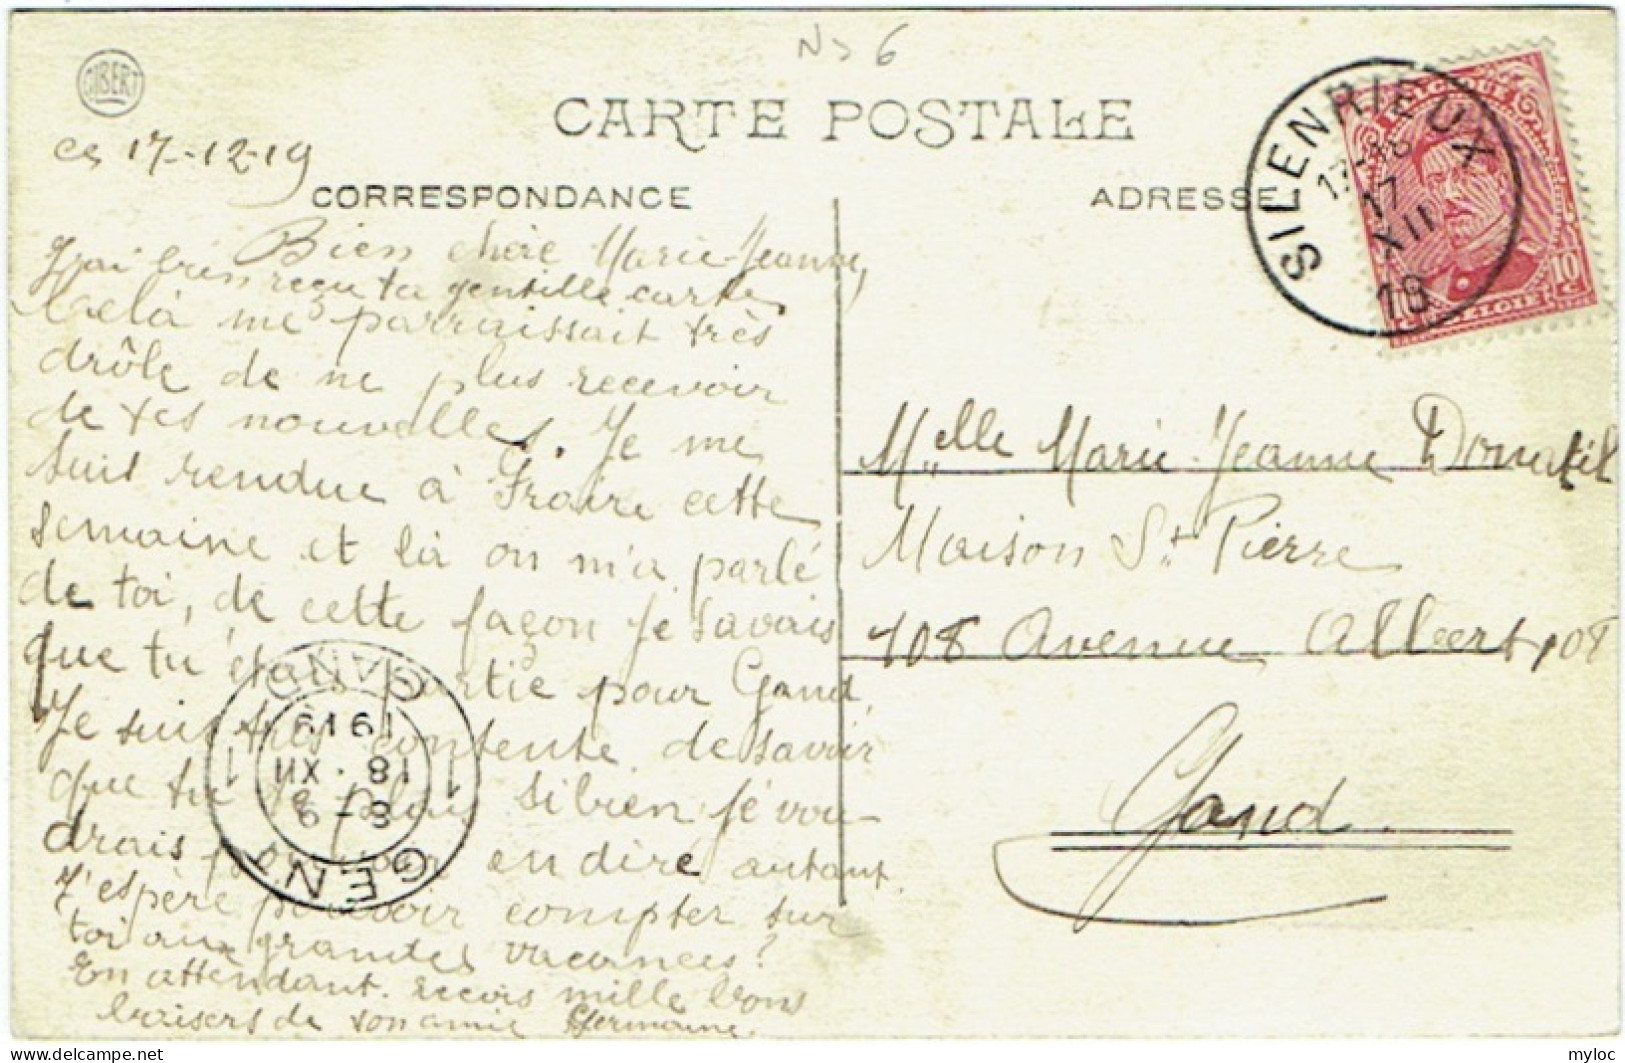 N> 6
GIBERT
CARTE POSTALE
ce 17-12-19
CORRESPONDANCE
ADRESSE
SILENRIEUX
17
XII
19
BELGIQUE
10 c
BELGIË
Bien chère Marie-Jeanne,
J'ai bien reçu ta gentille carte,
Celà me parraissait très
drôle de ne plus recevoir
de tes nouvelles. Je me
suis rendue à Fraire cette
semaine et là on m'a parlé
de toi, de cette façon je savais
que tu étais partie pour Gand,
Je suis très contente de savoir
que tu te plais si bien je vou-
drais pouvoir en dire autant.
J'espère pouvoir compter sur
toi aux grandes vacances?
En attendant reçois mille bons
baisers de ton amie Germaine.
GENT
1 1
8-9
18 · XII
1919
GAND
Melle Marie-Jeanne
Maison St Pierre
108 Avenue Albert, 108
Gand.
myloc